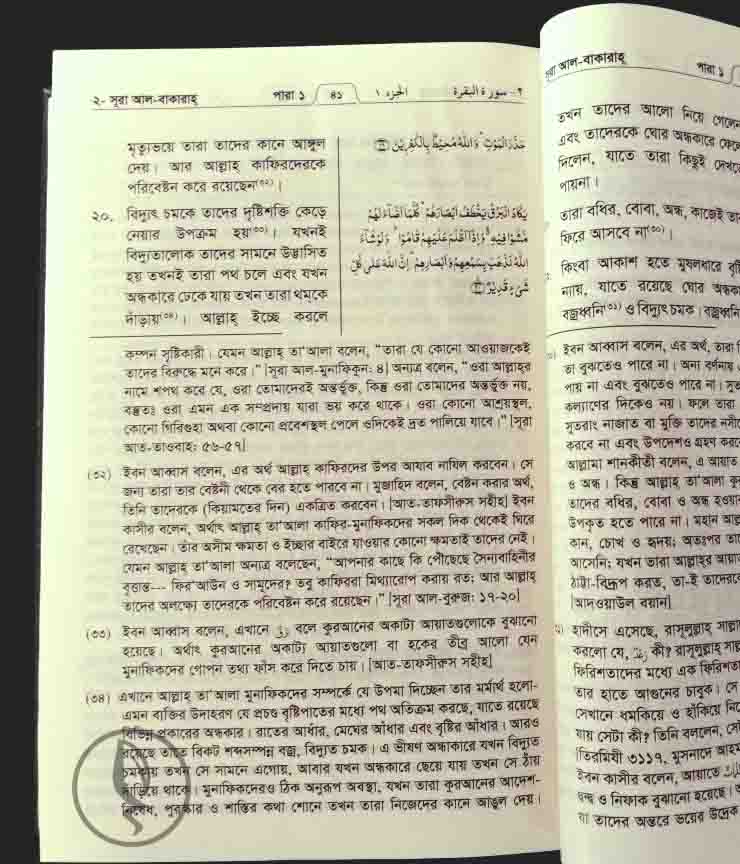 ২- সূরা আল-বাকারাহ্ পারা ১ ৪১ الجزء ١ ٢- سورة البقرة
মৃত্যুভয়ে তারা তাদের কানে আঙ্গুল
দেয়। আর আল্লাহ্ কাফিরদেরকে
পরিবেষ্টন করে রয়েছেন(৩২)।
حَذَرَالْمَوْتِ وَاللهُ مُحِيْطٌ بِالْكٰفِرِيْنَ
২০. বিদ্যুৎ চমকে তাদের দৃষ্টিশক্তি কেড়ে
নেয়ার উপক্রম হয়(৩৩)। যখনই
বিদ্যুতালোক তাদের সামনে উদ্ভাসিত
হয় তখনই তারা পথ চলে এবং যখন
অন্ধকারে ঢেকে যায় তখন তারা থম্‌কে
দাঁড়ায়(৩৪)। আল্লাহ্ ইচ্ছে করলে
يَكَادُ الْبَرْقُ يَخْطَفُ اَبْصَارَهُمْ كُلَّمَا اَضَآءَ لَهُمْ
مَّشَوْا فِيْهِ وَاِذَا اَظْلَمَ عَلَيْهِمْ قَامُوْا وَلَوْشَآءَ
اللهُ لَذَهَبَ بِسَمْعِهِمْ وَاَبْصَارِهِمْ اِنَّ اللهَ عَلٰى كُلِّ
شَىْءٍ قَدِيْرٌ
কম্পন সৃষ্টিকারী। যেমন আল্লাহ্ তা'আলা বলেন, “তারা যে কোনো আওয়াজকেই
তাদের বিরুদ্ধে মনে করে।” [সূরা আল-মুনাফিকুন: ৪] অন্যত্র বলেন, “ওরা আল্লাহ্‌র
নামে শপথ করে যে, ওরা তোমাদেরই অন্তর্ভুক্ত, কিন্তু ওরা তোমাদের অন্তর্ভুক্ত নয়,
বস্তুতঃ ওরা এমন এক সম্প্রদায় যারা ভয় করে থাকে। ওরা কোনো আশ্রয়স্থল,
কোনো গিরিগুহা অথবা কোনো প্রবেশস্থল পেলে ওদিকেই দ্রুত পালিয়ে যাবে।” [সূরা
আত-তাওবাহ: ৫৬-৫৭]
(৩২) ইবন আব্বাস বলেন, এর অর্থ আল্লাহ্ কাফিরদের উপর আযাব নাযিল করবেন। সে
জন্য তারা তার বেষ্টনী থেকে বের হতে পারবে না। মুজাহিদ বলেন, বেষ্টন করার অর্থ,
তিনি তাদেরকে (কিয়ামতের দিন) একত্রিত করবেন। [আত-তাফসীরুস সহীহ] ইবন
কাসীর বলেন, অর্থাৎ আল্লাহ্ তা'আলা কাফির-মুনাফিকদের সকল দিক থেকেই ঘিরে
রেখেছেন। তাঁর অসীম ক্ষমতা ও ইচ্ছার বাইরে যাওয়ার কোনো ক্ষমতাই তাদের নেই।
যেমন আল্লাহ্ তা'আলা অন্যত্র বলেছেন, “আপনার কাছে কি পৌঁছেছে সৈন্যবাহিনীর
বৃত্তান্ত--- ফির'আউন ও সামূদের? তবু কাফিররা মিথ্যারোপ করায় রত; আর আল্লাহ্
তাদের অলক্ষ্যে তাদেরকে পরিবেষ্টন করে রয়েছেন।” [সূরা আল-বুরুজ: ১৭-২০]
(৩৩) ইবন আব্বাস বলেন, এখানে برق বলে কুরআনের অকাট্য আয়াতগুলো বুঝানো
হয়েছে। অর্থাৎ কুরআনের অকাট্য আয়াতগুলো বা হকের তীব্র আলো যেন
মুনাফিকদের গোপন তথ্য ফাঁস করে দিতে চায়। [আত-তাফসীরুস সহীহ]
(৩৪) এখানে আল্লাহ্ তা'আলা মুনাফিকদের সম্পর্কে যে উপমা দিচ্ছেন তার মর্মার্থ হলো-
এমন ব্যক্তির উদাহরণ যে প্রচণ্ড বৃষ্টিপাতের মধ্যে পথ অতিক্রম করছে, যাতে রয়েছে
বিভিন্ন প্রকারের অন্ধকার। রাতের আঁধার, মেঘের আঁধার এবং বৃষ্টির আঁধার। আরও
রয়েছে তাতে বিকট শব্দসম্পন্ন বজ্র, বিদ্যুত চমক। এ ভীষণ অন্ধাকারে যখন বিদ্যুত
চমকায় তখন সে সামনে এগোয়, আবার যখন অন্ধকারে ছেয়ে যায় তখন সে ঠায়
দাঁড়িয়ে থাকে। মুনাফিকদেরও ঠিক অনুরূপ অবস্থা, যখন তারা কুরআনের আদেশ-
নিষেধ, পুরস্কার ও শাস্তির কথা শোনে তখন তারা নিজেদের কানে আঙুল দেয়।
সূরা আল-বাকারাহ্ পারা ১
তখন তাদের আলো নিয়ে গেলেন
এবং তাদেরকে ঘোর অন্ধকারে
দিলেন, যাতে তারা কিছুই
পায়না।
তারা বধির, বোবা, অন্ধ, কাজেই
ফিরে আসবে না(৩০)।
কিংবা আকাশ হতে মুষলধারে
ন্যায়, যাতে রয়েছে ঘোর
বজ্রধ্বনি(৩১) ও বিদ্যুৎ চমক।
ইবন আব্বাস বলেন, এর অর্থ, তারা
তা বুঝতেও পারে না। অন্য বর্ণনায়
পায় না এবং বুঝতেও পারে না।
কল্যাণের দিকেও নয়। ফলে তারা
সুতরাং নাজাত বা মুক্তি তাদের
করবে না এবং উপদেশও গ্রহণ
আল্লামা শানকীতী বলেন, এ আয়াত
ও অন্ধ। কিন্তু আল্লাহ্ তা'আলা
তাদের বধির, বোবা ও অন্ধ
উপকৃত হতে পারে না। মহান
কান, চোখ ও হৃদয়; অতঃপর
আসেনি; যখন তারা আল্লাহ্‌র
ঠাট্টা-বিদ্রূপ করত, তা-ই
[আদওয়াউল বয়ান]
হাদীসে এসেছে, রাসূলুল্লাহ্
করলো যে, رعد কী? রাসূলুল্লাহ্
ফিরিশতাদের মধ্যে এক
তার হাতে আগুনের চাবুক। সে
সেখানে ধমকিয়ে ও হাঁকিয়ে
যায় সেটা কী? তিনি বললেন,
[তিরমিযী ৩১১৭, মুসনাদে
ইবন কাসীর বলেন, আয়াতে
দ্বন্দ্ব ও নিফাক বুঝানো হয়েছে।
যা তাদের অন্তরে ভয়ের উদ্রেক